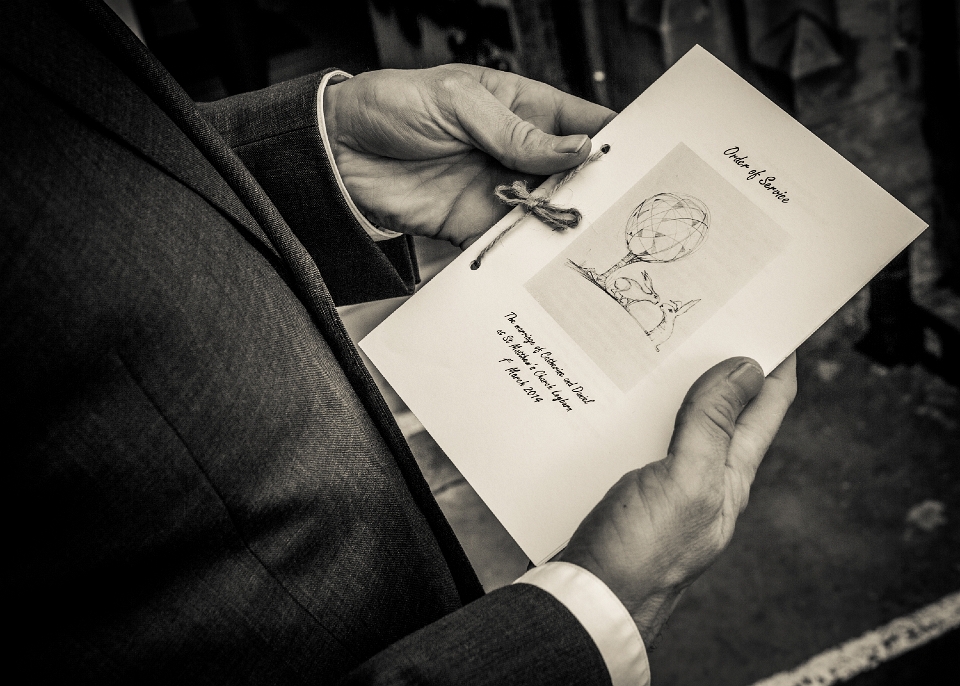 Order of Service
The marriage of Catherine and David
at St Matthew's Church Leyburn
1st March 2014